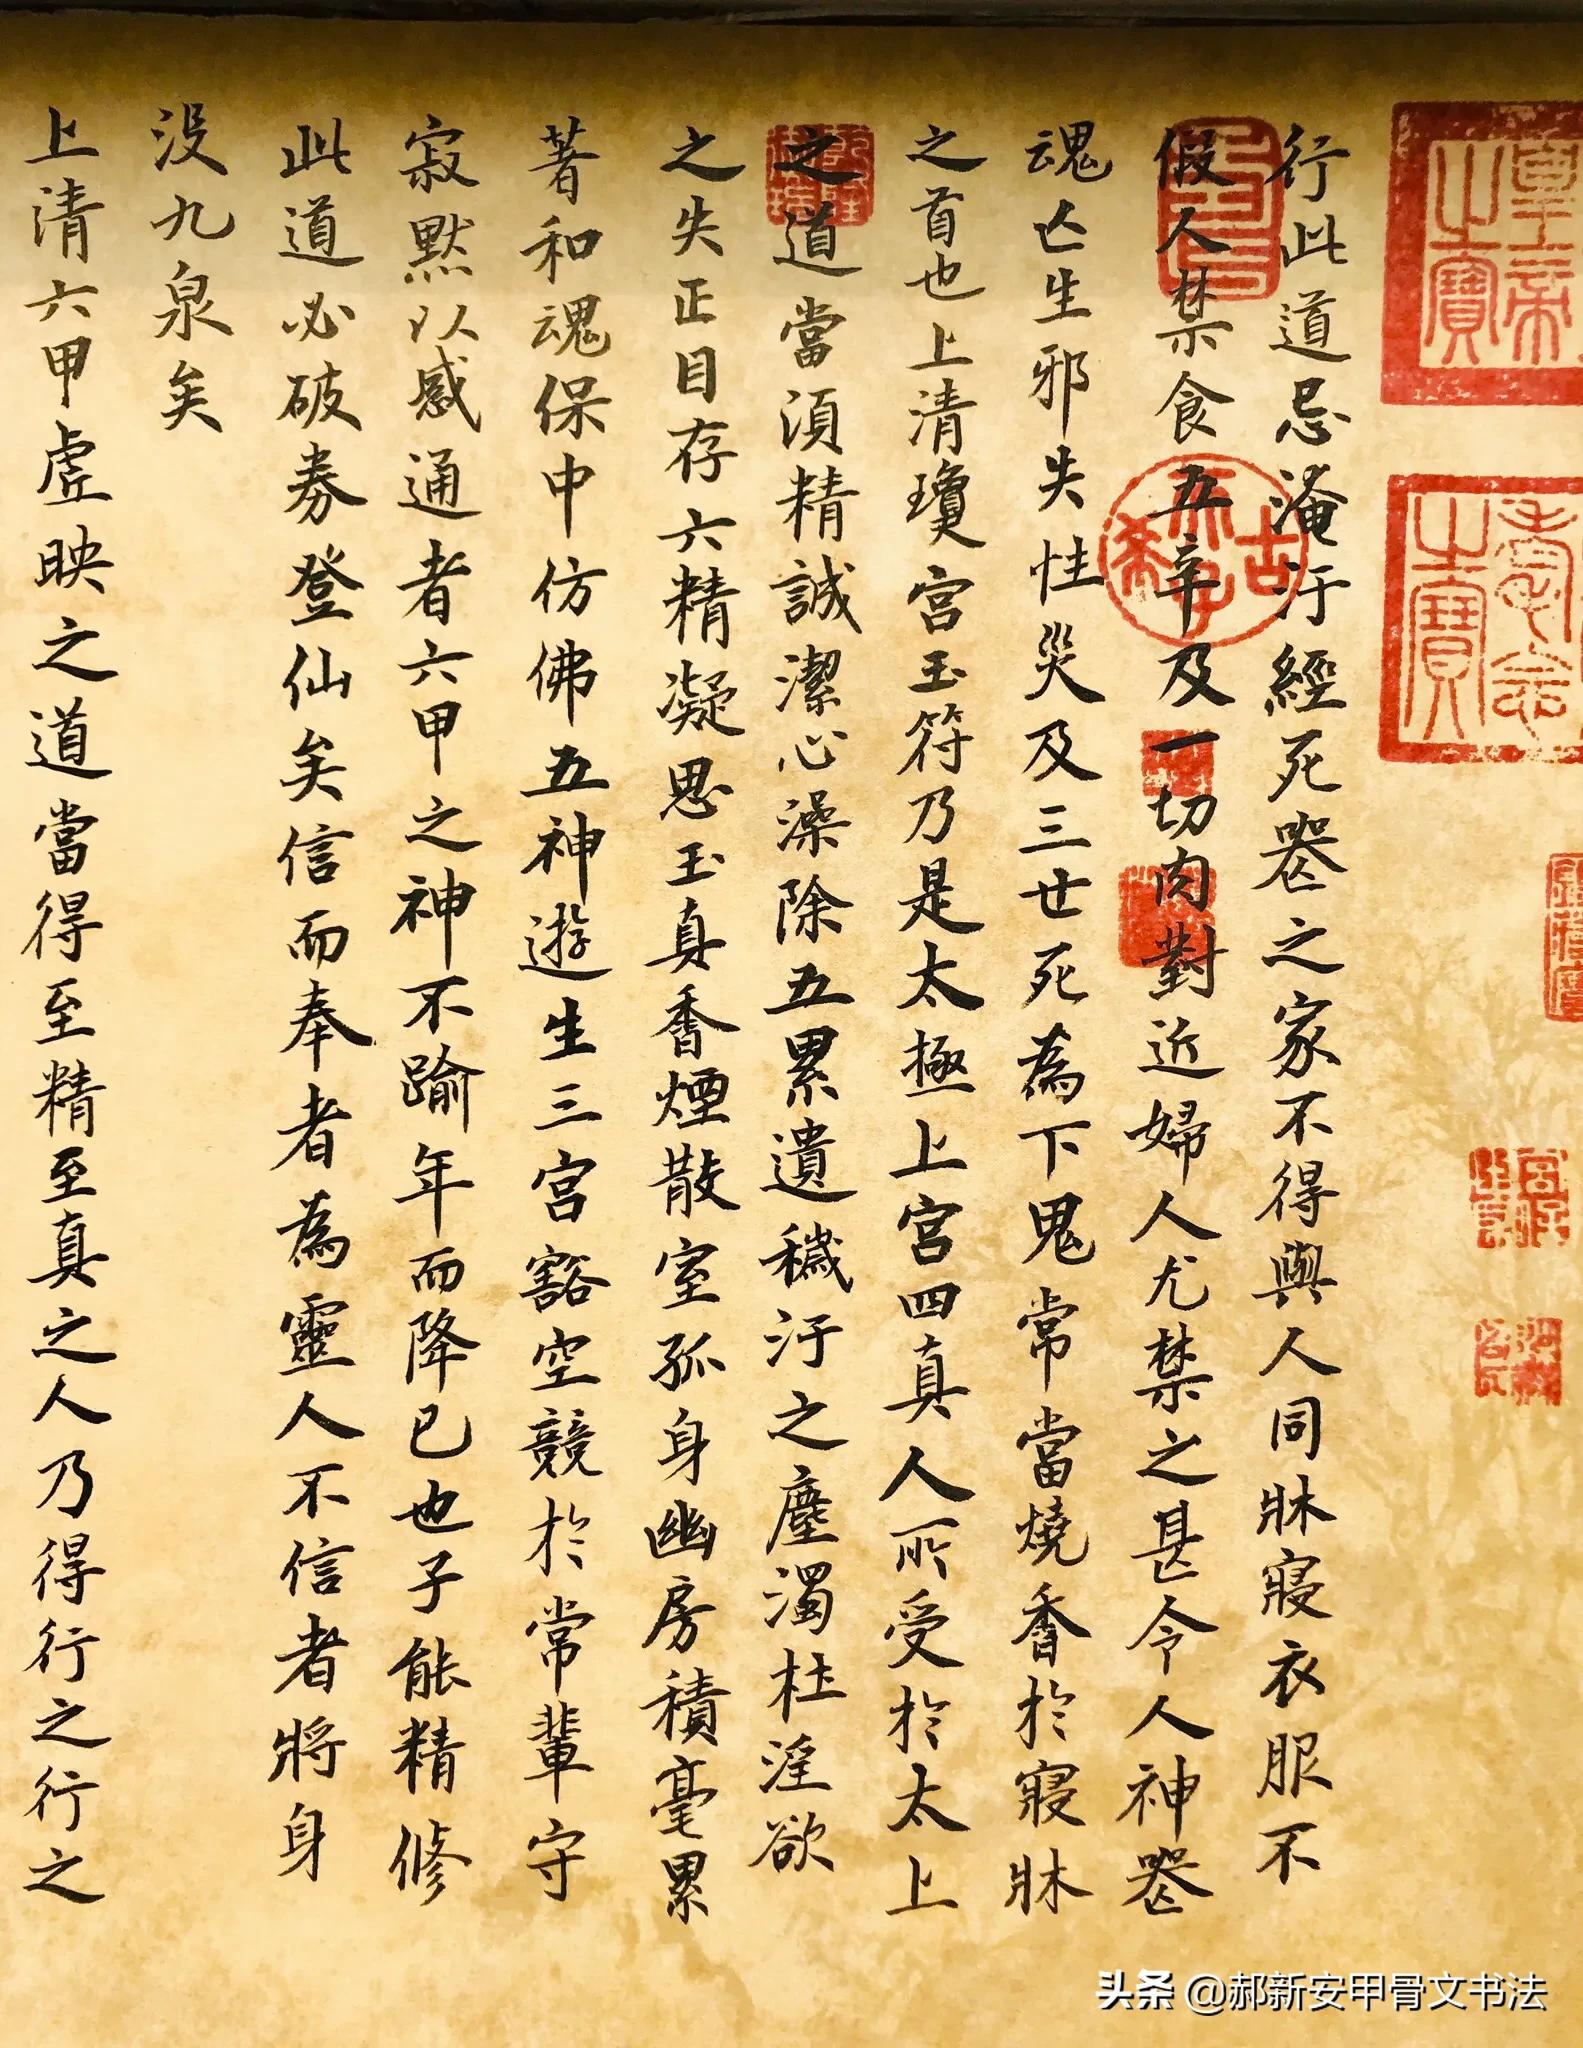 行此道忌淹汙經死喪之家不得與人同牀寢衣服不
假人禁食五辛及一切肉對近婦人尤禁之甚令人神喪
魂亡生邪失性災及三世死為下鬼常當燒香於寢牀
之首也上清瓊宮玉符乃是太極上宮四真人所受於太上
之道當須精誠潔心澡除五累遺穢汙之塵濁杜淫欲
之失正目存六精凝思玉真香煙散室孤身幽房積毫累
著和魂保中仿佛五神遊生三宮豁空競於常輩守
寂默以感通者六甲之神不踰年而降已也子能精修
此道必破券登仙矣信而奉者為靈人不信者將身
沒九泉矣
上清六甲虛映之道當得至精至真之人乃得行之行之
古希天子
頭条 @郝新安甲骨文书法